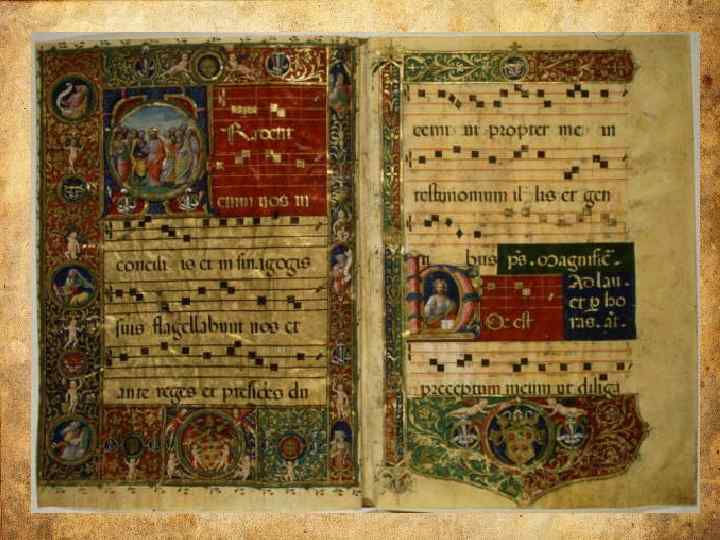 Radent
enim uos in
concili is et in sinagogis
suis flagellabunt uos et
ante reges et presides du
cemi ni propter me in
testimonium il lis et gen
ti bus ps. Magnific.
Ad lau.
et p ho
Hoc est ras. añ.
preceptum meum ut diliga